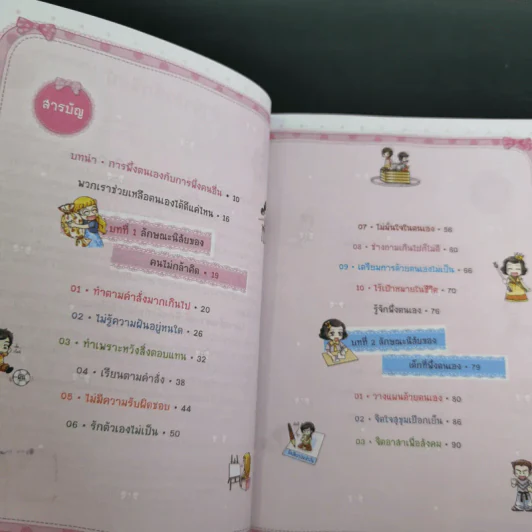 สารบัญ
บทนำ • การพึ่งตนเองกับการพึ่งคนอื่น • 10
พวกเราช่วยเหลือตนเองได้ดีแค่ไหน • 16
บทที่ 1 ลักษณะนิสัยของ
คนไม่กล้าคิด • 19
01 • ทำตามคำสั่งมากเกินไป • 20
02 • ไม่รู้ความฝันอยู่หนใด • 26
03 • ทำเพราะหวังสิ่งตอบแทน • 32
04 • เรียนตามคำสั่ง • 38
05 • ไม่มีความรับผิดชอบ • 44
06 • รักตัวเองไม่เป็น • 50
07 • ไม่มั่นใจในตนเอง • 56
08 • ร่างกายเกินไปก็ไม่ดี • 62
09 • เตรียมการด้วยตนเองไม่เป็น • 66
10 • ไร้เป้าหมายในชีวิต • 70
รู้จักพึ่งตนเอง • 76
บทที่ 2 ลักษณะนิสัยของ
เด็กที่พึ่งตนเอง • 79
01 • วางแผนด้วยตนเอง • 80
02 • จิตใจสุขุมเยือกเย็น • 86
03 • จิตอาสาเพื่อสังคม • 90